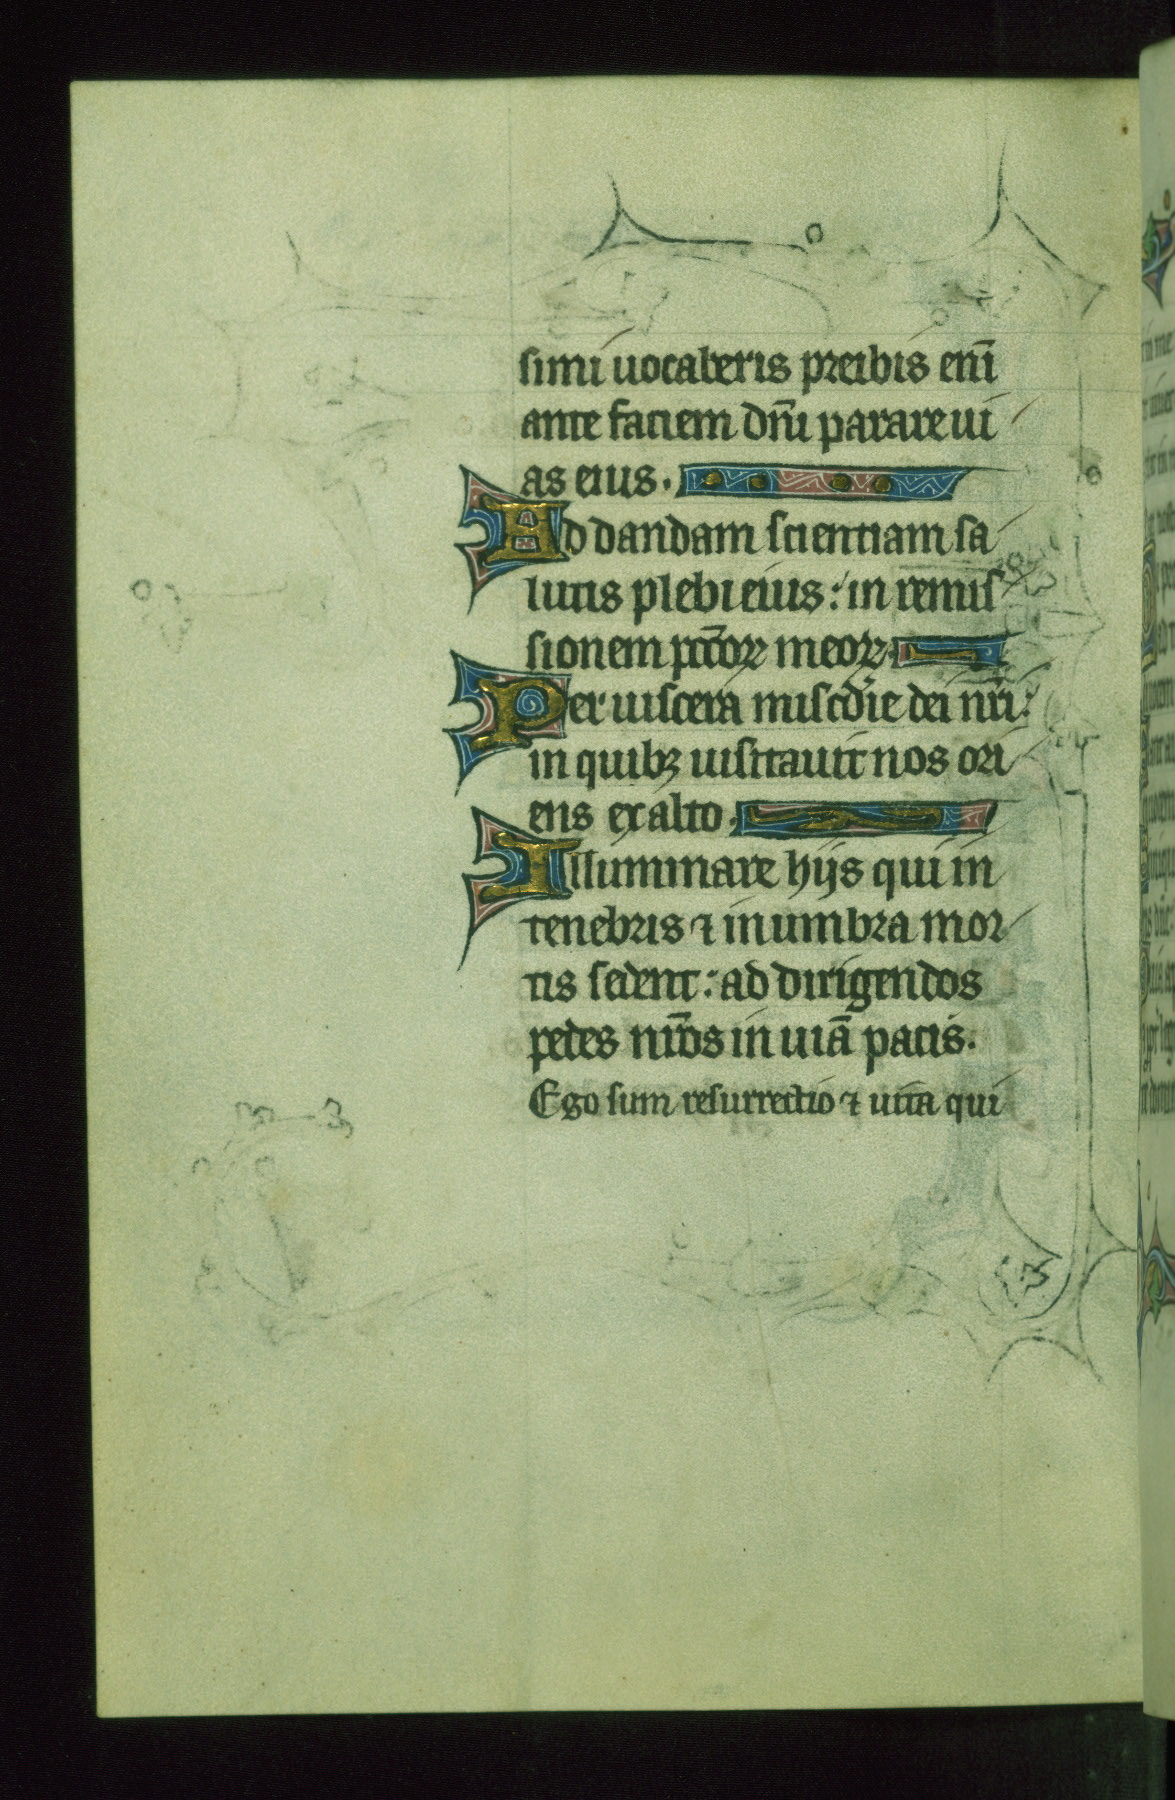 simi uocaberis preibis eni̅
ante faciem dn̅i parare ui
as eius.
Ad dandam scientiam sa
lutis plebi eius: in remis
sionem pcc̅oꝝ meoꝝ.
Per uiscera misc̅die dei nr̅i:
in quibꝫ uisitauit nos ori
ens ex alto.
Illuminare hijs qui in
tenebris ⁊ in umbra mor
tis sedent: ad dirigendos
pedes nr̅os in uia̅ pacis.
Ego sum resurrectio ⁊ uita qui